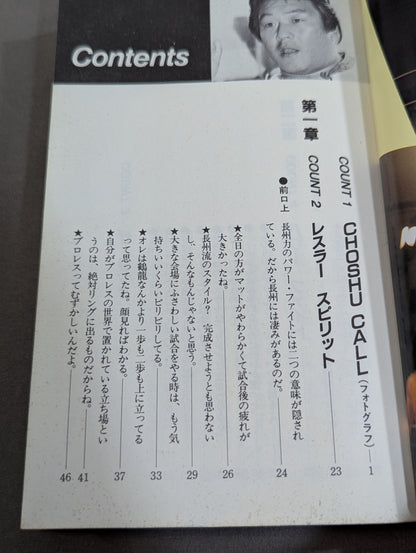 Contents
COUNT 1 CHOSHU CALL(フォトグラフ) 1
第一章
COUNT 2 レスラー スピリット 23
●前口上
長州力のパワー・ファイトには二つの意味が隠され
ている。だから長州には凄みがあるのだ。 24
★全日の方がマットがやわらかくて試合後の疲れが
大きかったね。 26
★長州流のスタイル? 完成させようとも思わない
し、そんなもんじゃないと思う。 29
★大きな会場にふさわしい試合をやる時は、もう気
持ちいいくらいビリビリしてる。 33
★オレは鶴龍なんかより一歩も二歩も上に立ってる
って思ってたね。顔見ればわかる。 37
★自分がプロレスの世界で置かれている立場とい
うのは、絶対リングに出るものだからね。 41
★プロレスってむずかしいんだよ。 46